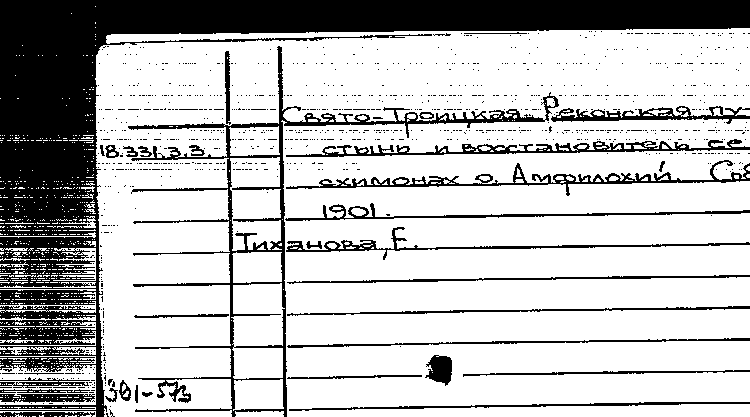 Свято-Троицкая-Реконская пу-
18.331.3.3. стынь и восстановитель ее
схимонах о. Амфилохий. Спб
1901.
Тиханова, Е.
301-573